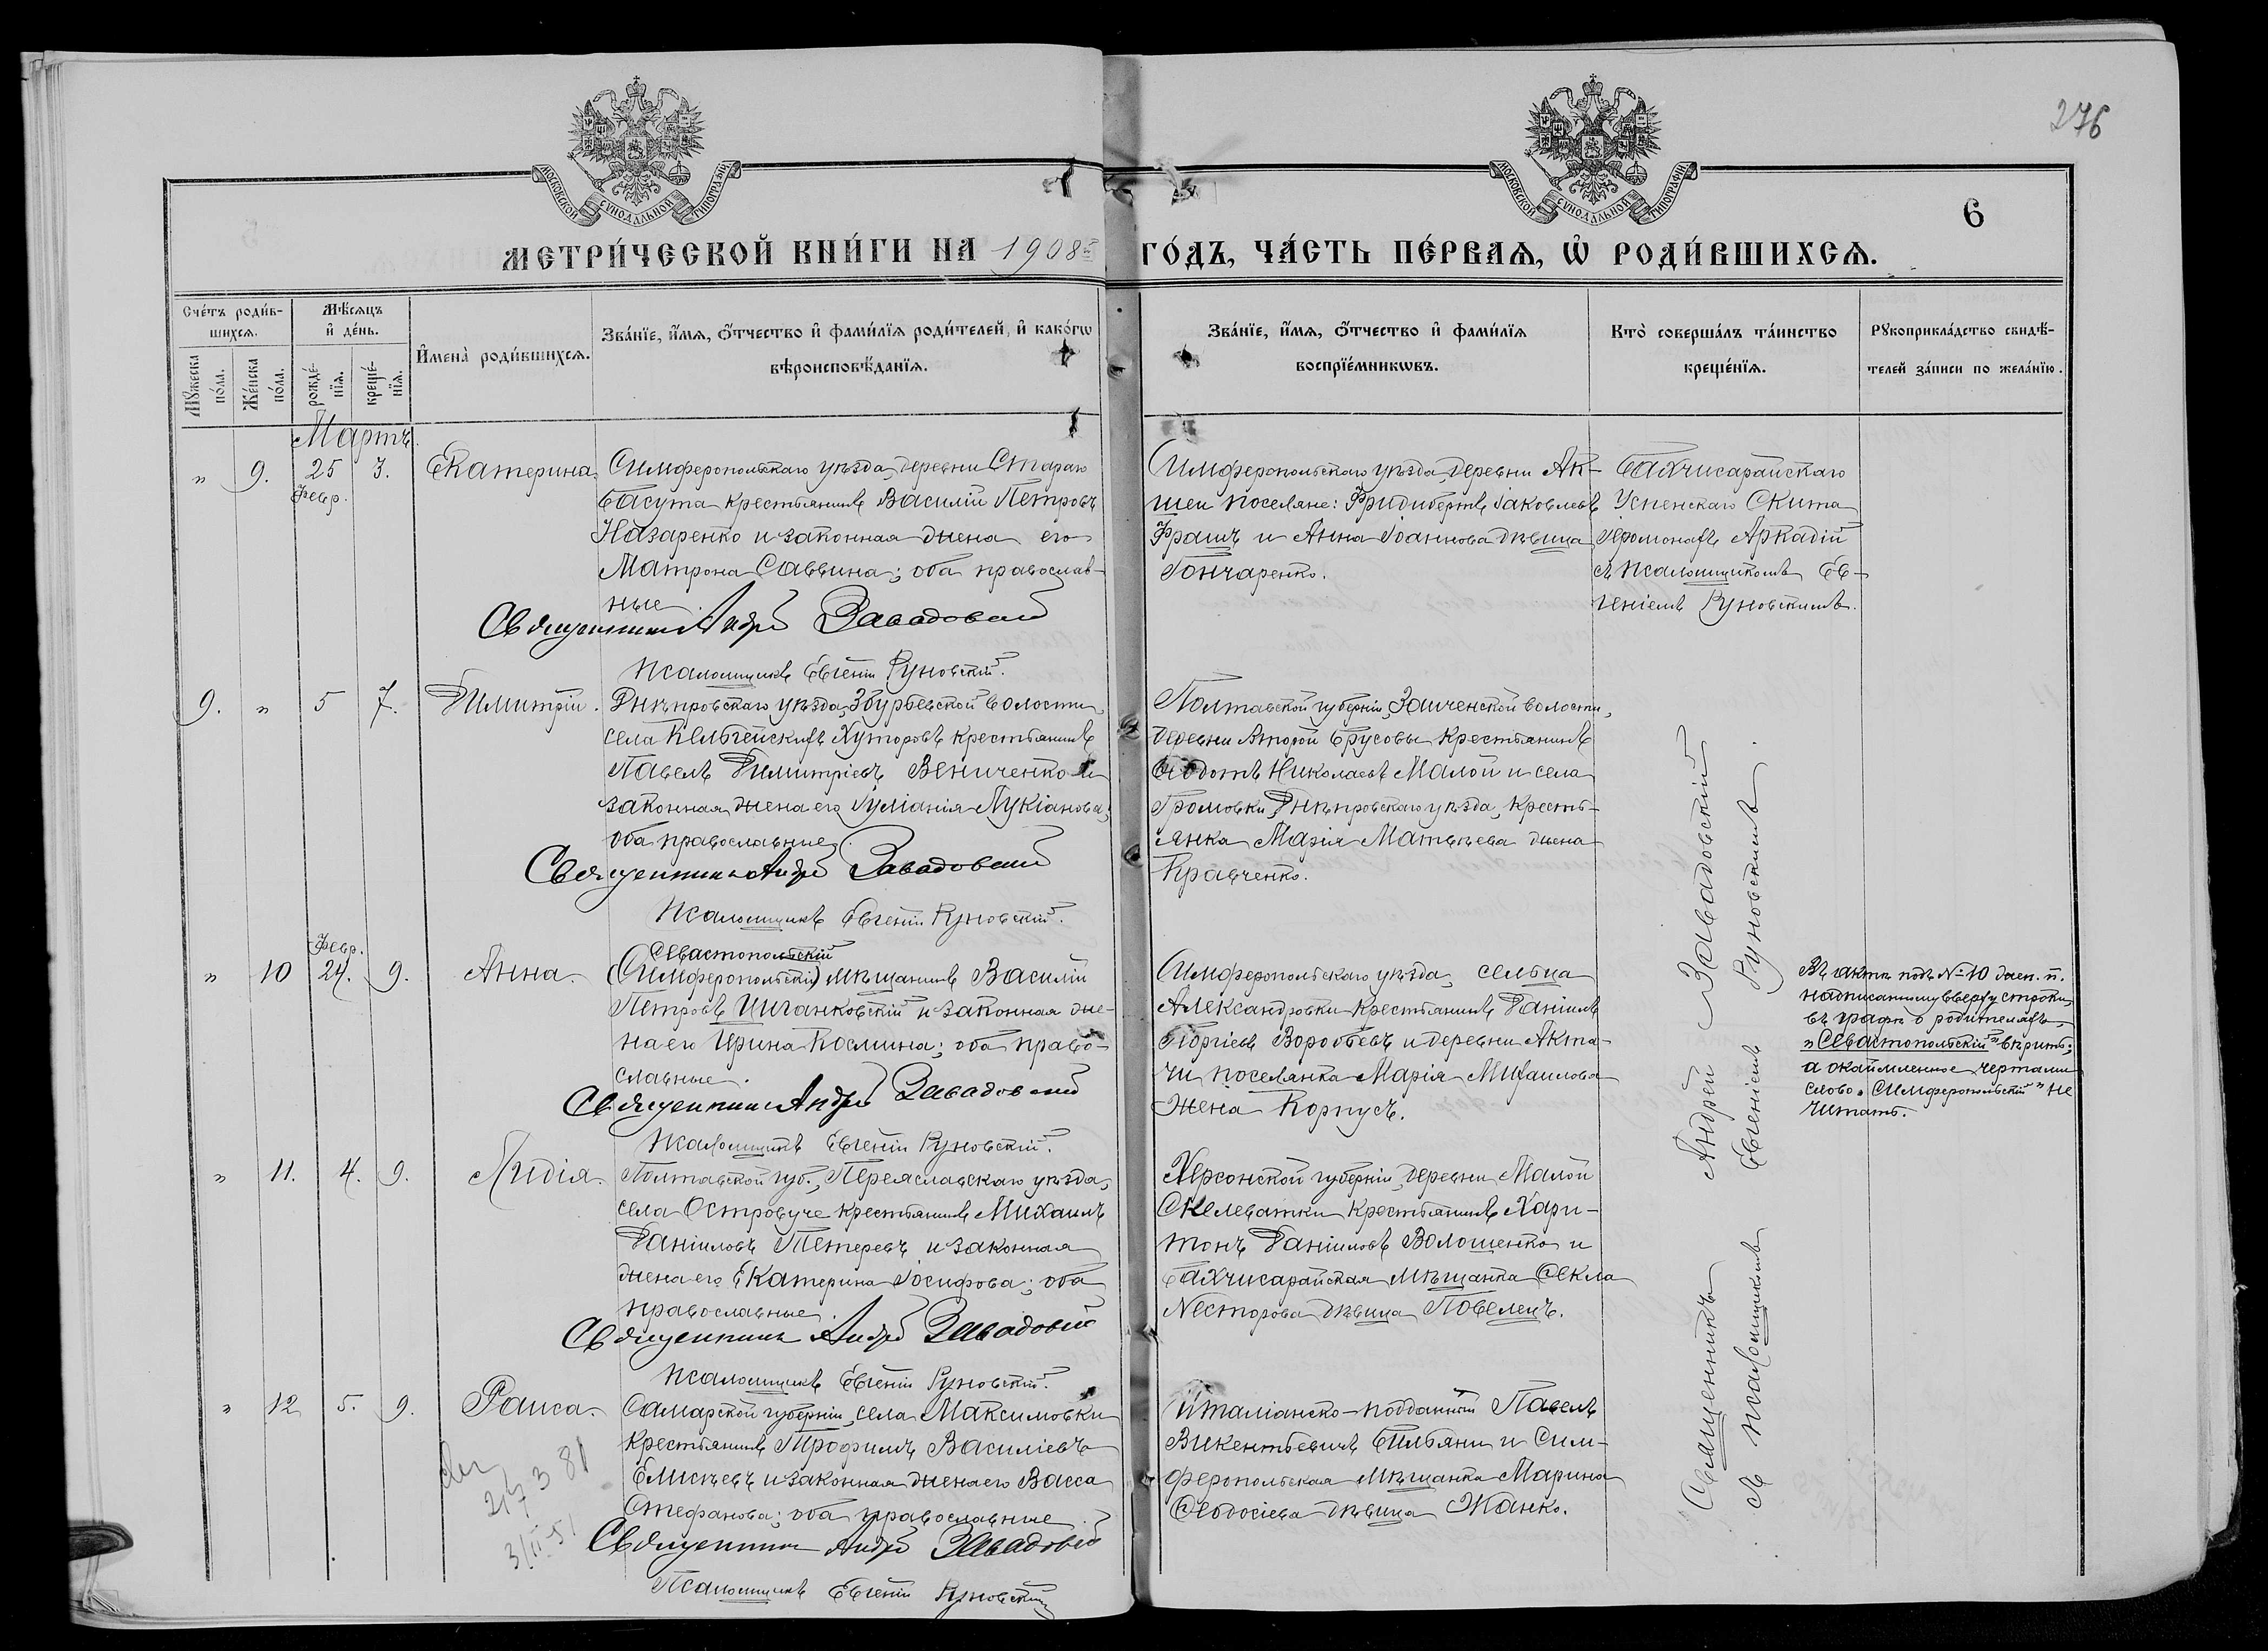 276
МОСКОВСКОЙ СѴНОДАЛЬНОЙ ТИПОГРАФІИ
МОСКОВСКОЙ СѴНОДАЛЬНОЙ ТИПОГРАФІИ
6
МЕТРИ́ЧЕСКОЙ КНИ́ГИ НА 1908й ГО́ДЪ, ЧА́СТЬ ПЕ́РВАѦ, Ѡ҆ РОДИ́ВШИХСѦ.
Счéтъ роди́в-
шихсѧ.
Мѣ́сѧцъ
и҆ де́нь.
Мꙋ́жеска
по́ла.
Же́нска
по́ла.
рожде́-
нїѧ.
креще́-
нїѧ.
И҆мена̀ роди́вшихсѧ.
Зва́нїе, и҆́мѧ, ѻ҆́тчество и҆ фами́лїѧ роди́телей, и҆ како́гѡ
вѣроисповѣ́данїѧ.
Зва́нїе, и҆́мѧ, ѻ҆́тчество и҆ фами́лїѧ
воспрїе́мникѡвъ.
Кто̀ соверша́лъ та́инство
креще́нїѧ.
Рꙋкоприкла́дство свидѣ́-
телей за́писи по жела́нїю.
Мартъ.
„ 9. 25 3. Екатерина.
Февр.
Симферопольскаго уѣзда, деревни Стараго
Басута крестьянинъ Василій Петровъ
Назаренко и законная жена его
Матрона Саввина; оба православ-
ные.
Священникъ Андрей Завадовскій
Псаломщикъ Евгеній Руновскій.
Симферопольскаго уѣзда, деревни Ак-
шеи поселяне: Фридибертъ Іаковлевъ
Фрашъ и Анна Іоаннова дѣвица
Гончаренко.
Бахчисарайскаго
Успенскаго Скита
Іеромонахъ Аркадій
съ псаломщикомъ Ев-
геніемъ Руновскимъ.
9. „ 5 7. Димитрій.
Днѣпровскаго уѣзда, Збурьевской волости,
села Кельгейскихъ Хуторовъ крестьянинъ
Павелъ Димитріевъ Вениченко и
законная жена его Іуліанія Лукіанова;
оба православные.
Священникъ Андрей Завадовскій
Псаломщикъ Евгеній Руновскій.
Полтавской губерніи, Заиченской волости,
деревни Второй Брусовы крестьянинъ
Ѳеодотъ Николаевъ Малой и села
Громовки, Днѣпровскаго уѣзда, кресть-
янка Марія Матвѣева жена
Кравченко.
Февр.
„ 10 24. 9. Анна.
Севастопольскій
(Симферопольскій) мѣщанинъ Василій
Петровъ Циганковскій и законная же-
на его Ирина Космина; оба право-
славные.
Священникъ Андрей Завадовскій
Псаломщикъ Евгеній Руновскій.
Симферопольскаго уѣзда, сельца
Александровки крестьянинъ Даніилъ
Георгіевъ Воробьевъ и деревни Акта-
чи поселянка Марія Михаилова
жена Корпусъ.
Въ актѣ подъ №10 жен. п.
надписанному вверху строки,
въ графѣ о родителяхъ,
„Севастопольскій" вѣрить;
а окаймленное чертами
слово „Симферопольскій" не
читать.
„ 11. 4. 9. Лидія.
Полтавской губ., Переяславскаго уѣзда,
села Островуче крестьянинъ Михаилъ
Даніиловъ Тетеревъ и законная
жена его Екатерина Іосифова; оба
православные.
Священникъ Андрей Завадовскій
Псаломщикъ Евгеній Руновскій.
Херсонской губерніи, деревни Малой
Скелеватки крестьянинъ Хари-
тонъ Даніиловъ Волошенко и
Бахчисарайская мѣщанка Ѳекла
Несторова дѣвица Повелецъ.
„ 12 5. 9. Раиса.
Самарской губерніи, села Максимовки
крестьянинъ Трофимъ Василіевъ
Елисѣевъ и законная жена его Васса
Стефанова; оба православные.
Священникъ Андрей Завадовскій
Псаломщикъ Евгеній Руновскій
Италіанско-подданный Павелъ
Викентьевичъ Бильяни и Сим-
феропольская мѣщанка Марина
Ѳеодосіева дѣвица Жанко.
Священникъ Андрей Завадовскій
съ псаломщикомъ Евгеніемъ Руновскимъ.